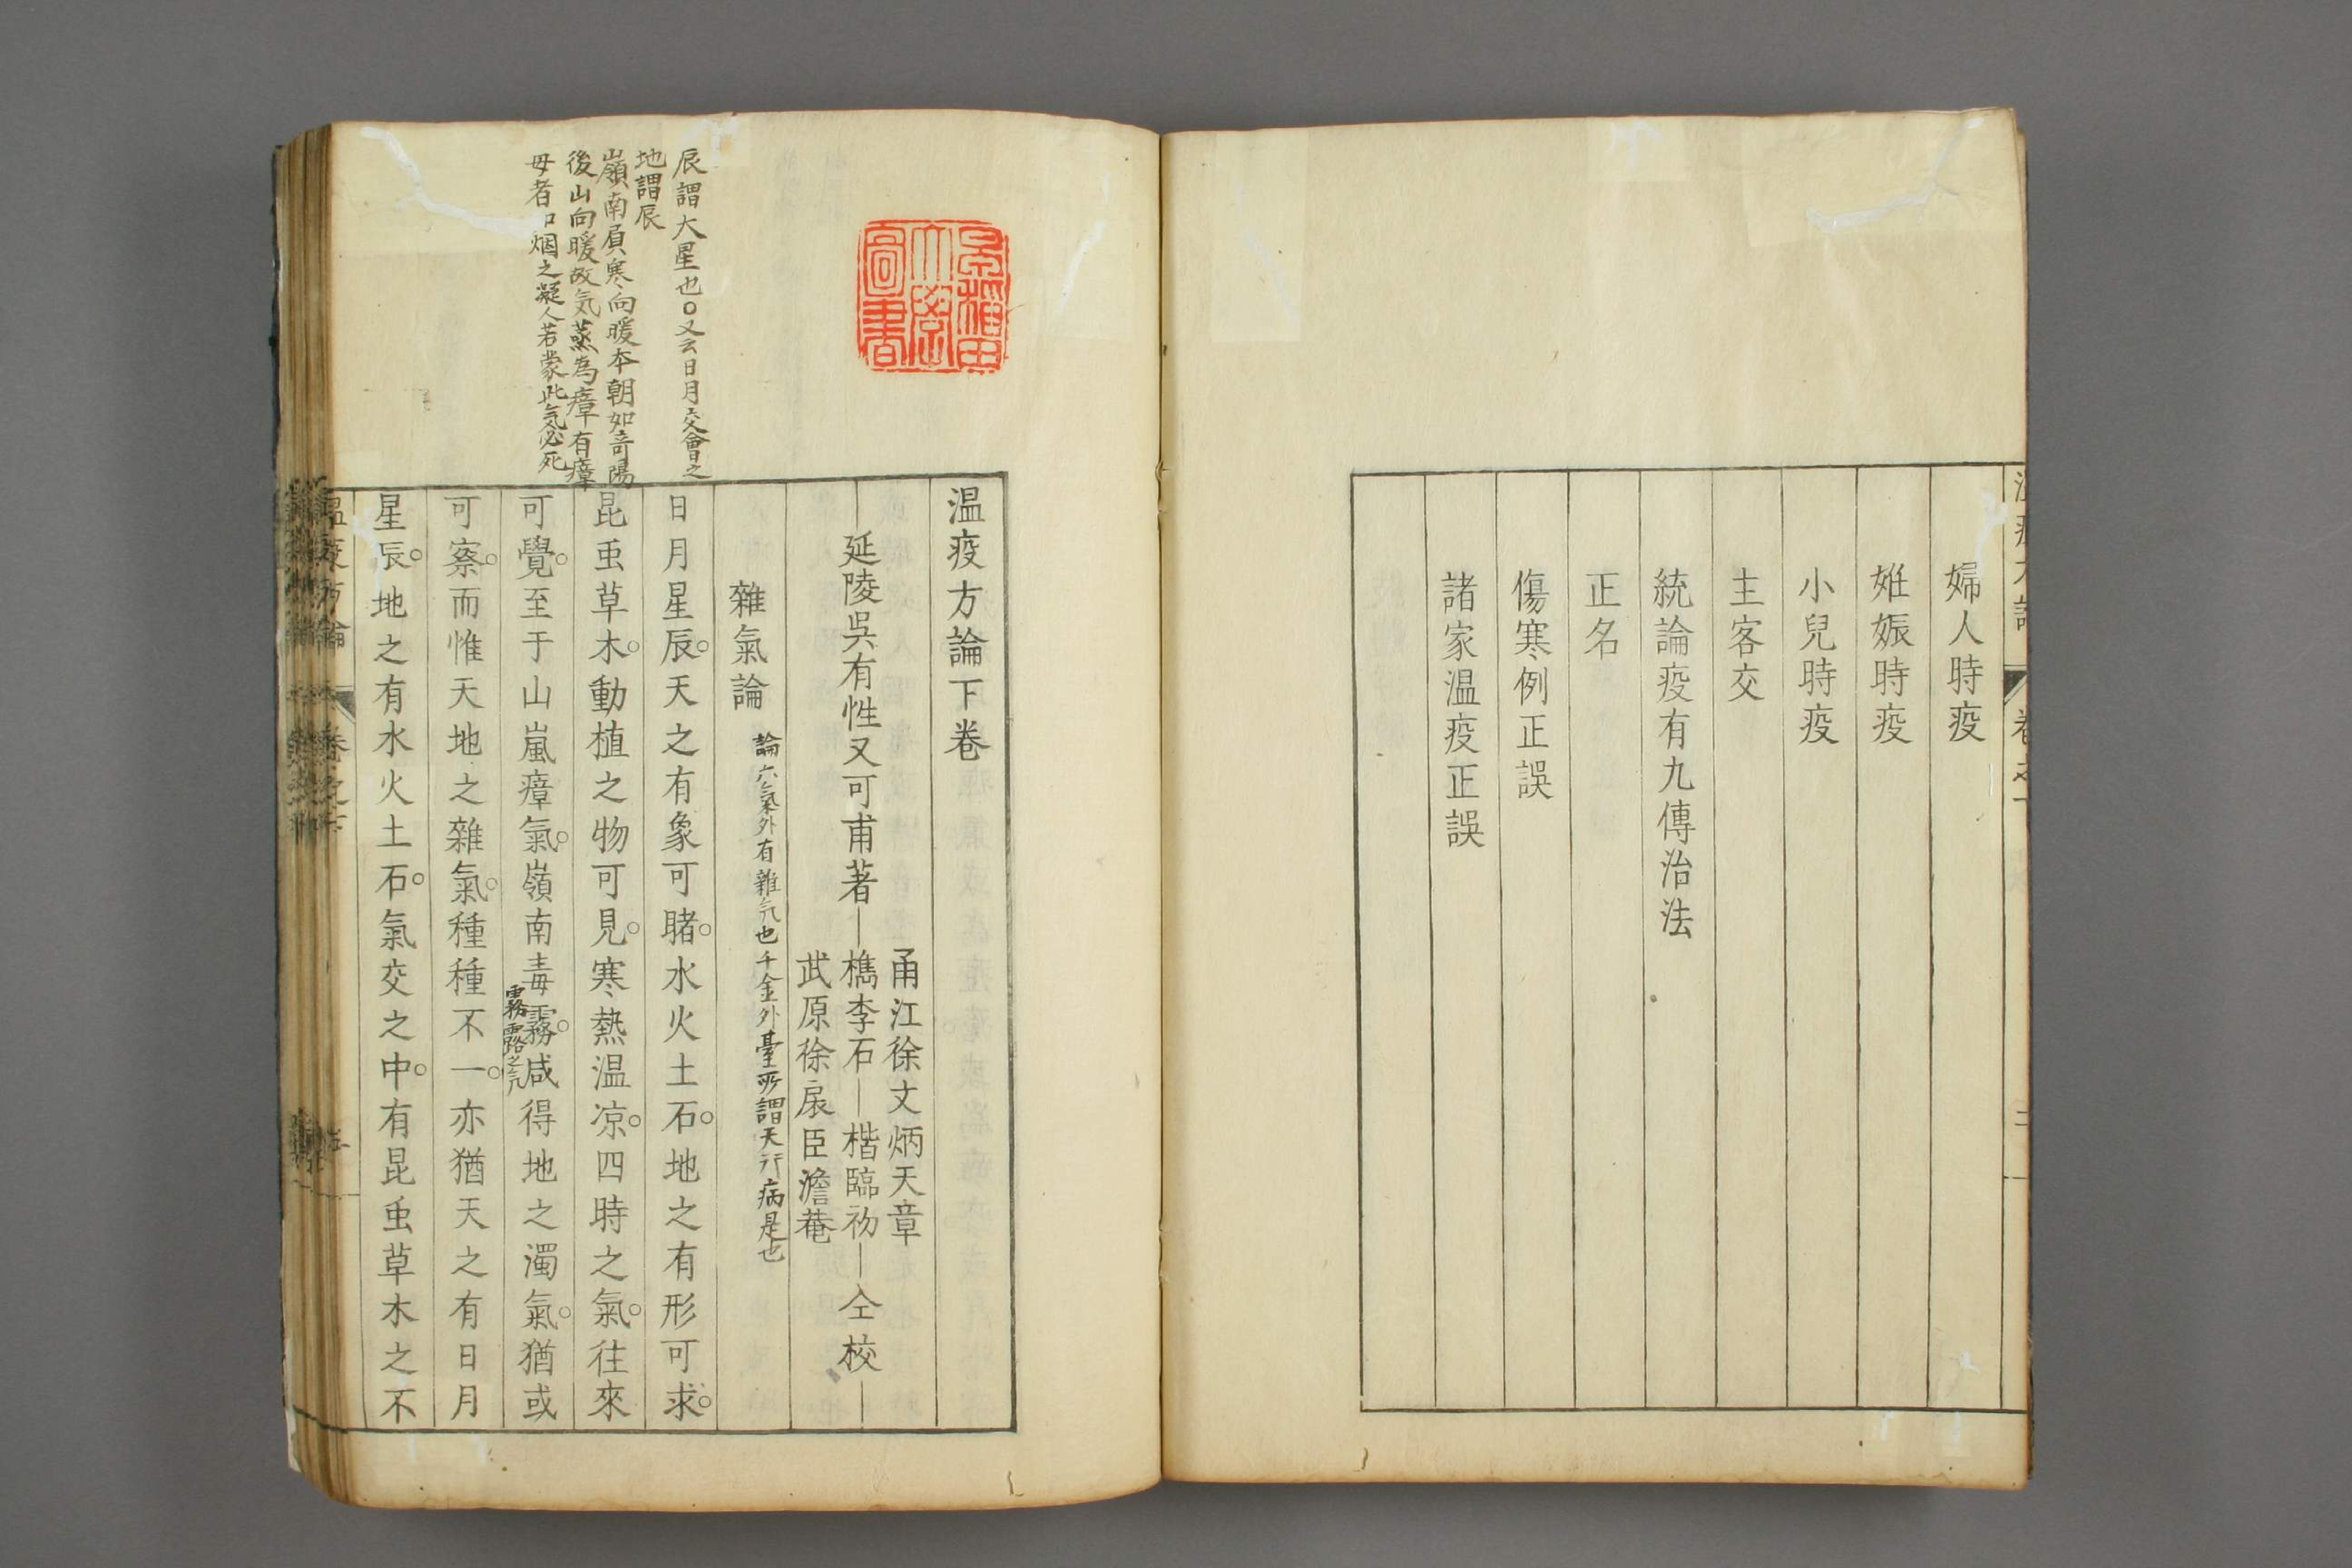 婦人時疫
妊娠時疫
小兒時疫
主客交
統論疫有九傳治法
正名
傷寒例正誤
諸家温疫正誤
温疫方論下卷
延陵吳有性又可甫著
甬江徐文炳天章
檇李石楷臨初
武原徐扆臣澹菴
仝校
雜氣論
論六氣外有雜気也千金外臺所謂天行病是也
日月星辰。天之有象可睹。水火土石。地之有形可求。
昆虫草木。動植之物可見。寒熱温凉。四時之氣。往來
可覺。至于山嵐瘴氣。嶺南毒霧。咸得地之濁氣。猶或
霧露之気
可察。而惟天地之雜氣。種種不一。亦猶天之有日月
星辰。地之有水火土石。氣交之中。有昆虫草木之不
辰謂大星也○又云日月交會之
地謂辰
嶺南屓寒向暖本朝如奇陽
後山向暖故気蒸為瘴有瘴
母者如烟之凝人若蒙此気必死
早稲田大學圖書